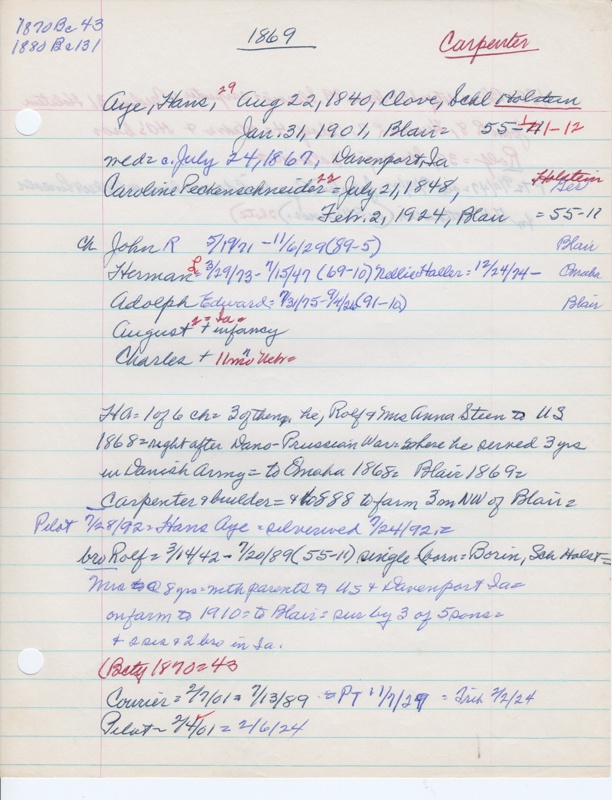 1870 Bc 43
1880 Bc 131
1869
Carpenter
Aye, Hans, 29 Aug 22, 1840, Clove, Schl Holstein
Jan. 31, 1901, Blair = 55-11-12
med = c. July 24, 1867, Davenport, Ia
Caroline Peckenschneider 22 = July 21, 1848, Holstein Ger
Feb. 2, 1924, Blair = 55-11
ch John R 5/19/71 - 11/6/29 (89-5) Blair
Herman L = 3/29/73 - 7/15/47 (69-10) Nellie Haller = 12/24/74 - Omaha
Adolph Edward = 7/31/75 - 9/4/26 (91-10) Blair
August 2 = Ia = + infancy
Charles + 11 mo Nebr =
HA = 1 of 6 ch = 3 of them, he, Rolf & Mrs Anna Steen to US
1868 = right after Dano-Prussian War = where he served 3 yrs
in Danish Army = to Omaha 1868 = Blair 1869 =
Carpenter & builder = & to 888 to farm 3 m NW of Blair =
Pilot 7/28/92 = Hans Aye = silverwed 7/24/92 =
bro Rolf = 3/14/42 - 7/20/89 (55-11) single born = Borin, Sch Holst =
Mrs 8 yrs = with parents to US & Davenport Ia =
on farm to 1910 = to Blair = sur by 3 of 5 sons =
+ 2 sis & 2 bro in Ia.
(Bcty 1870 = 43
Courier = 2/7/01 = 7/13/89 = PT 11/7/29 = Trib 2/2/24
Pilot = 2/6/24